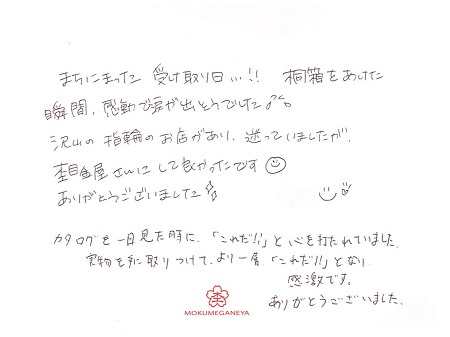 まちにまった 受け取り日…!! 桐箱をあけた
瞬間、感動で涙が出そうでした
沢山の指輪のお店があり、迷っていましたが、
杢目金屋さんにして良かったです
ありがとうございました
カタログを一目見た時に、「これだ!!」と心を打たれていました。
実物を手に取りつけて、より一層「これだ!!」となり
感激です。
ありがとうございました。
杢
MOKUMEGANEYA